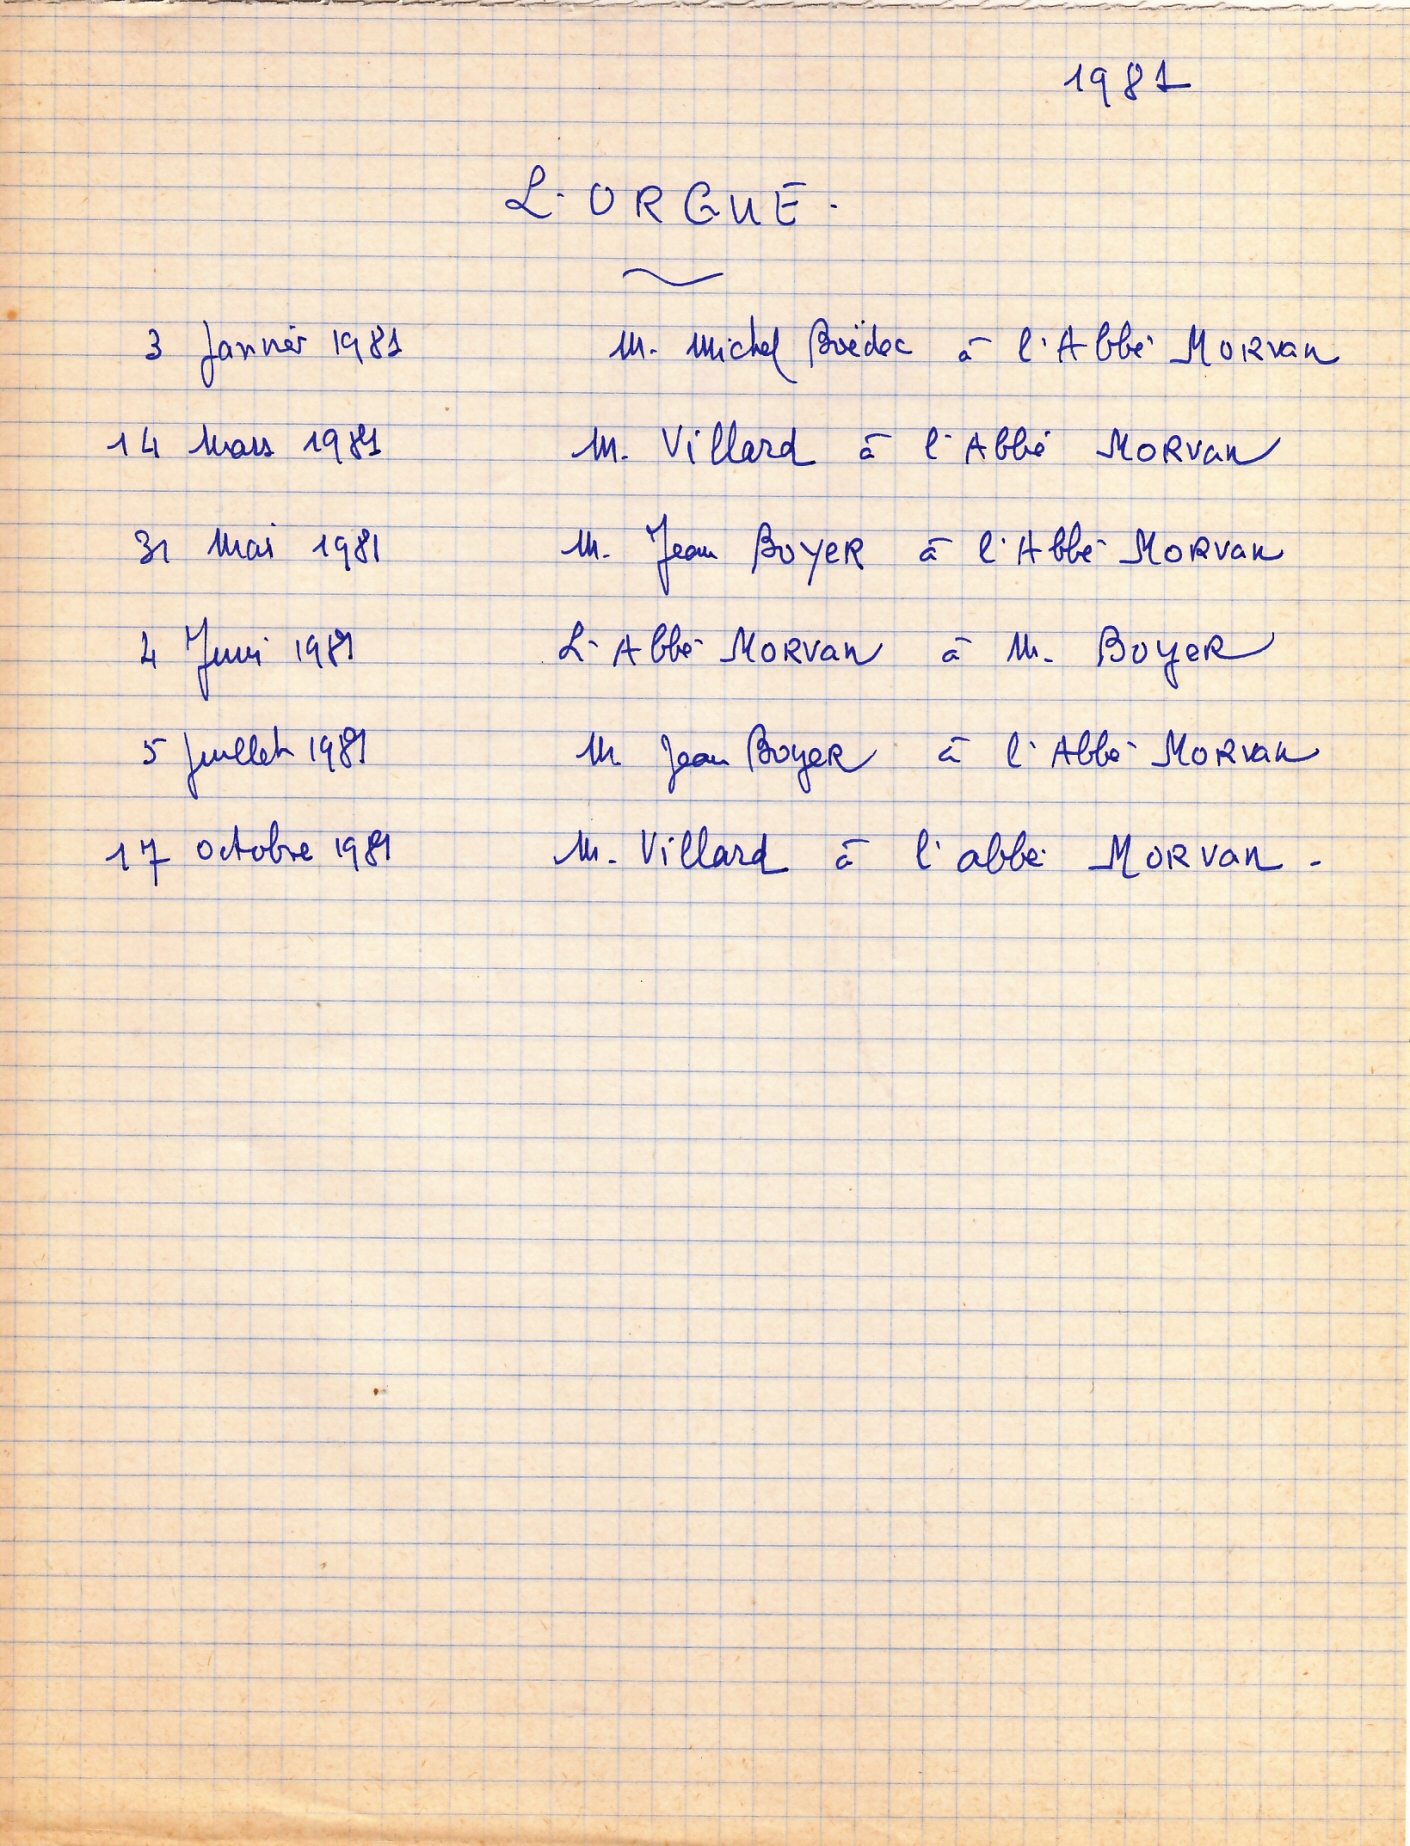 1981
L'ORGUE.
3 Janvier 1981 M. Michel Boëdec à l'Abbé MORVAN
14 Mars 1981 M. Villard à l'Abbé MORVAN
31 Mai 1981 M. Jean BOYER à l'Abbé MORVAN
4 Juin 1981 L'Abbé MORVAN à M. BOYER
5 Juillet 1981 M Jean BOYER à l'Abbé MORVAN
17 octobre 1981 M. Villard à l'abbé MORVAN.